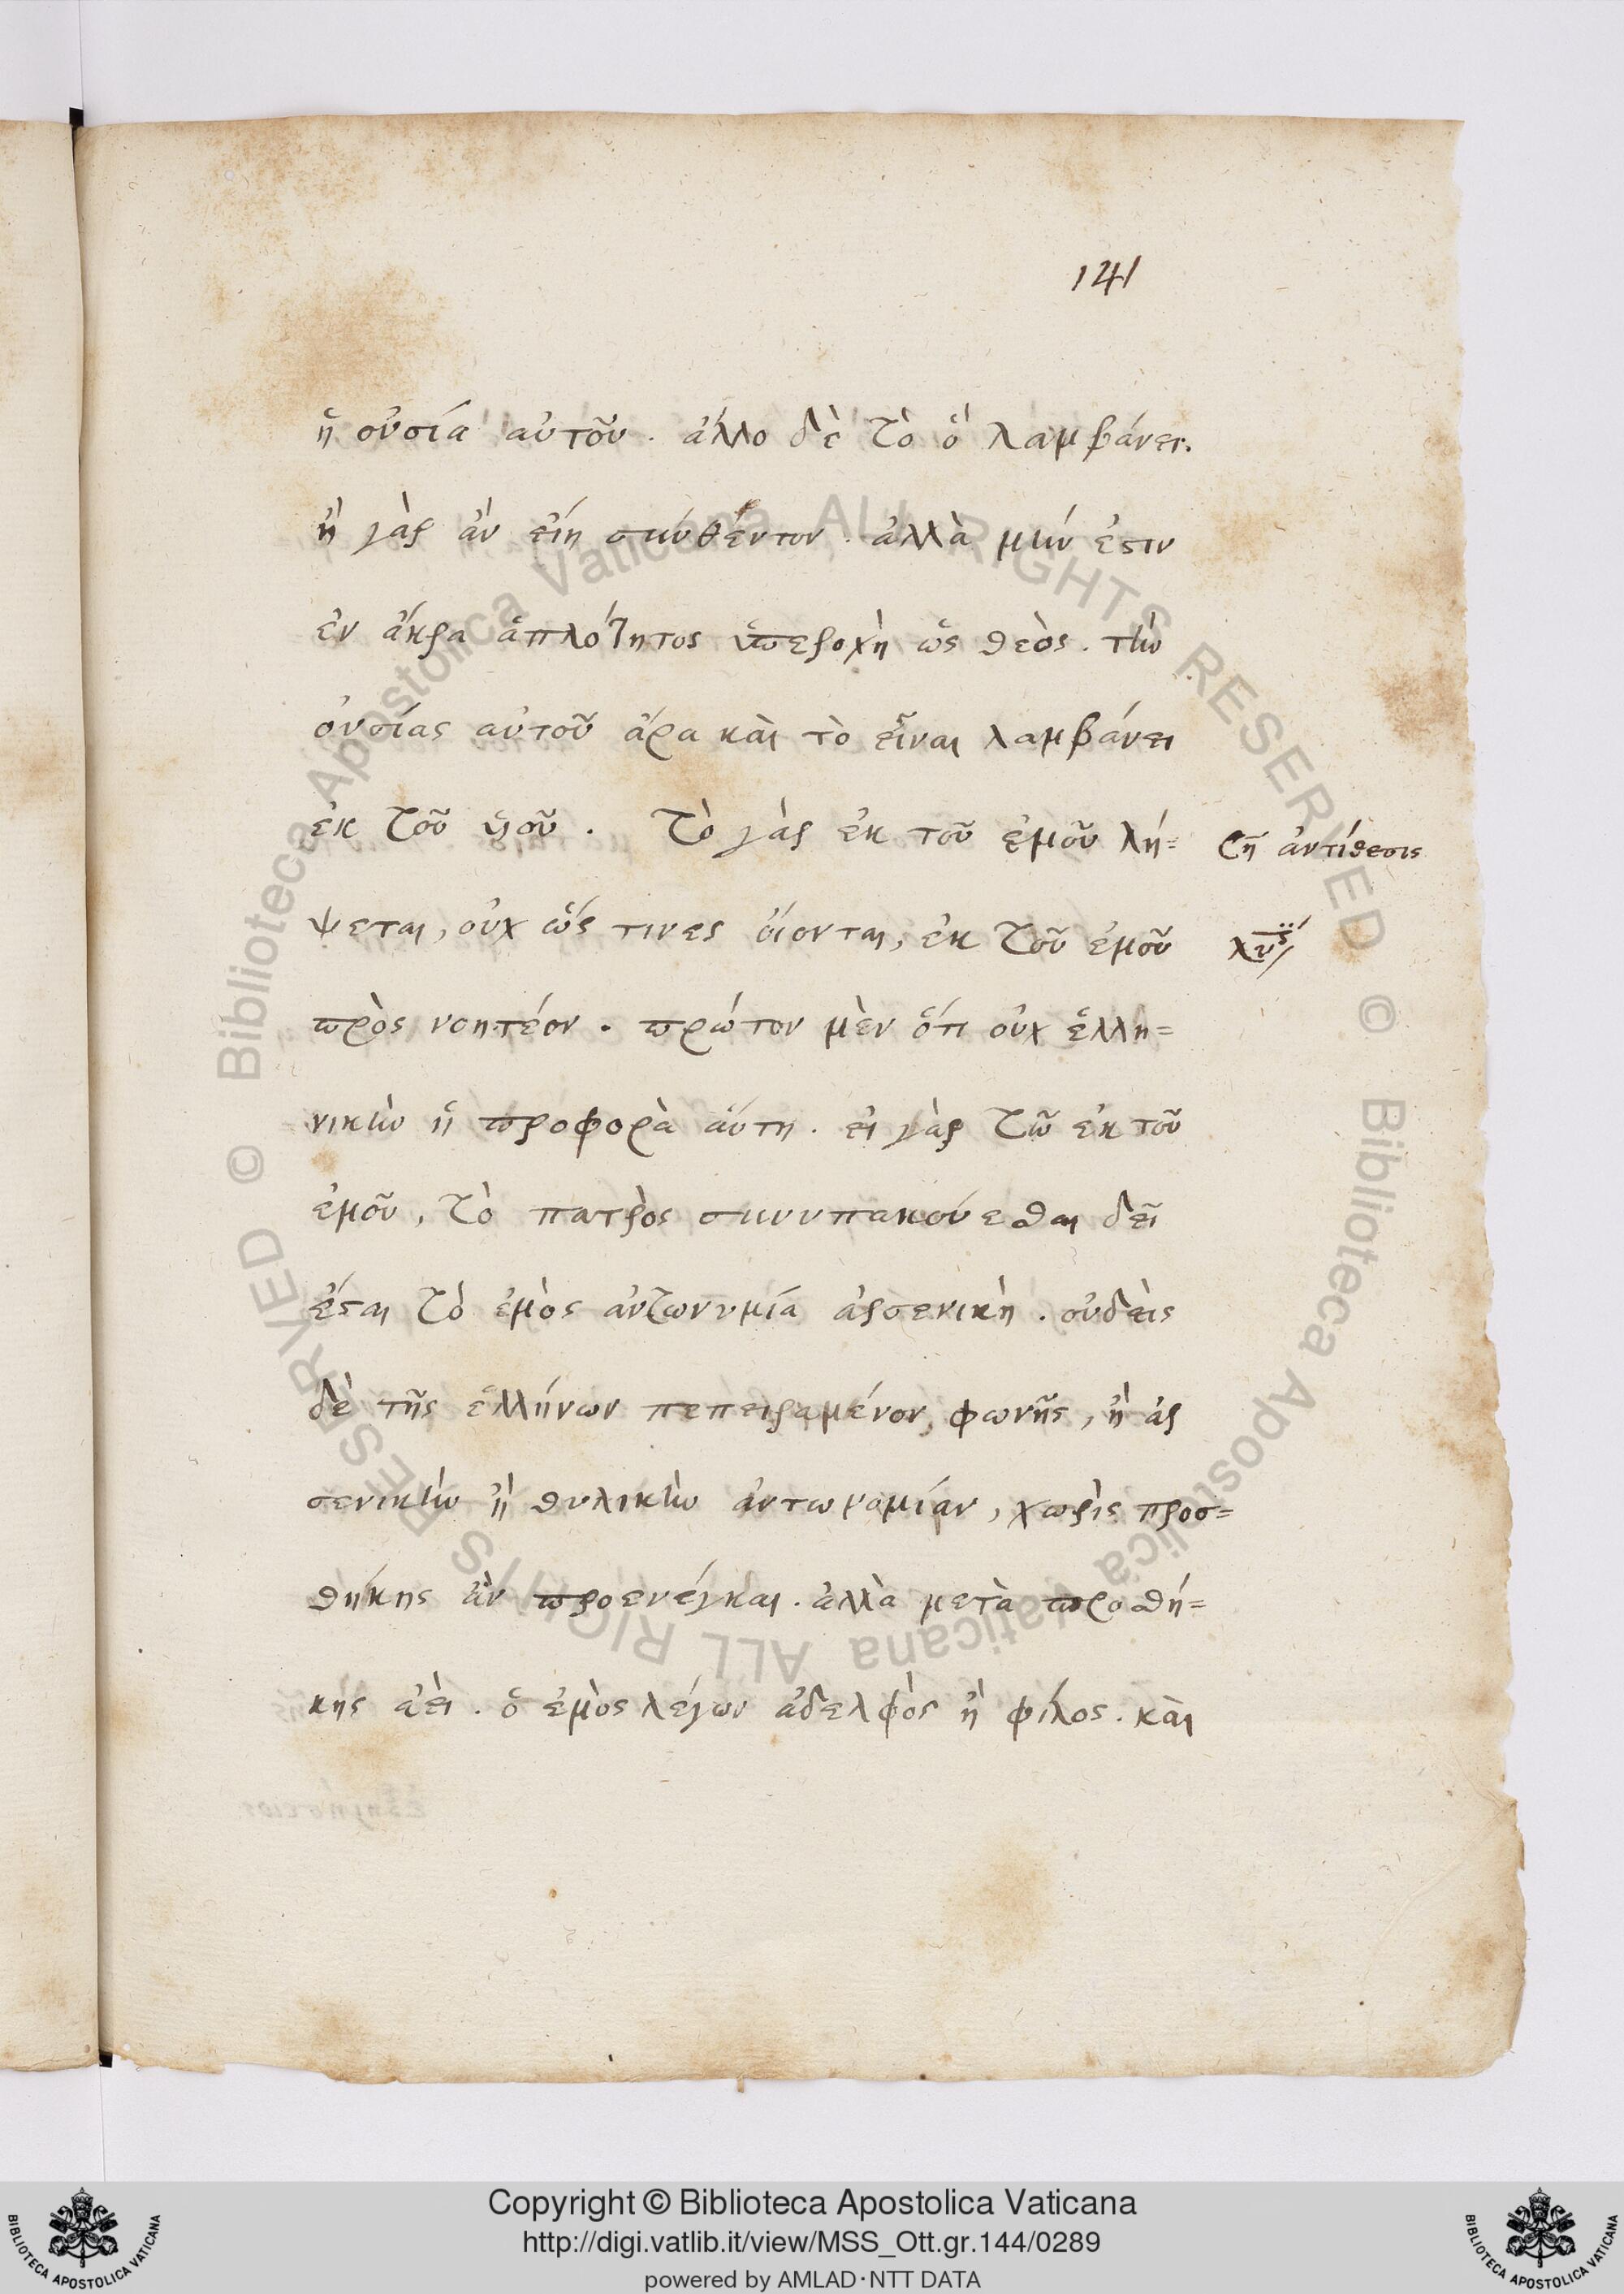 141
ἡ οὐσία αὐτοῦ. ἄλλο δὲ τὸ ὃ λαμβάνει.
ἢ γὰρ ἂν εἴη συνθέντον. ἀλλὰ μήν ἐστιν
ἐν ἄκρα ἁπλότητος ὑπεροχὴ ὡς θεὸς. τὴν
οὐσίας αὐτοῦ ἄρα καὶ τὸ εἶναι λαμβάνει
ἐκ τοῦ υἱοῦ. Τὸ γὰρ ἐκ τοῦ ἐμοῦ λή=
ἀντίθεσις
ψεται, οὐχ ὥς τινες οἴονται, ἐκ τοῦ ἐμοῦ
λύσ
πρὸς νοητέον. πρώτον μὲν ὅτι οὐχ ἑλλη=
νικὴν ἡ προφορὰ αὕτη. εἰ γὰρ τῶ ἐκ τοῦ
ἐμοῦ, τὸ πατρὸς συνυπακούεσθαι δεῖ
ἔσται τὸ ἐμὸς ἀντωνυμία ἀρσενικὴ. οὐδεὶς
δὲ τῆς ἑλλήνων πεπειραμένον, φωνῆς, ἢ ἀρ
σενικὴν ἢ θυλικὴν ἀντωνομίαν, χωρὶς προσ=
θήκης ἂν προενέγκαι. ἀλλὰ μετὰ προσθή=
κης ἀεὶ. ὁ ἐμὸς λέγων ἀδελφὸς ἢ φίλος. καὶ
© Biblioteca Apostolica Vaticana ALL RIGHTS RESERVED © Biblioteca Apostolica Vaticana ALL RIGHTS RESERVED
Copyright © Biblioteca Apostolica Vaticana
http://digi.vatlib.it/view/MSS_Ott.gr.144/0289
powered by AMLAD·NTT DATA
BIBLIOTECA APOSTOLICA VATICANA
BIBLIOTECA APOSTOLICA VATICANA